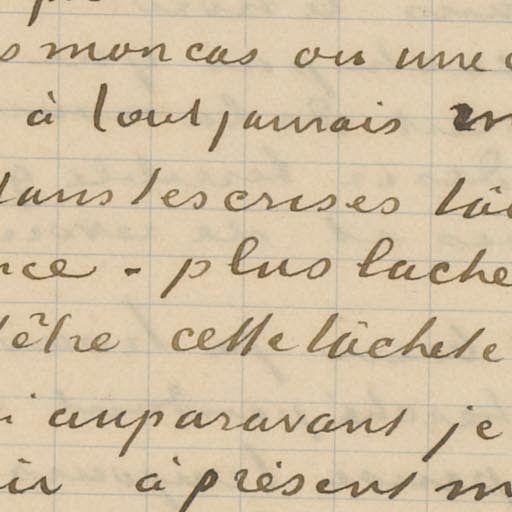 s mon cas ou une
à tout jamais
dans les crises lâ
nce - plus lache
être cette lâcheté
auparavant je
à présent m